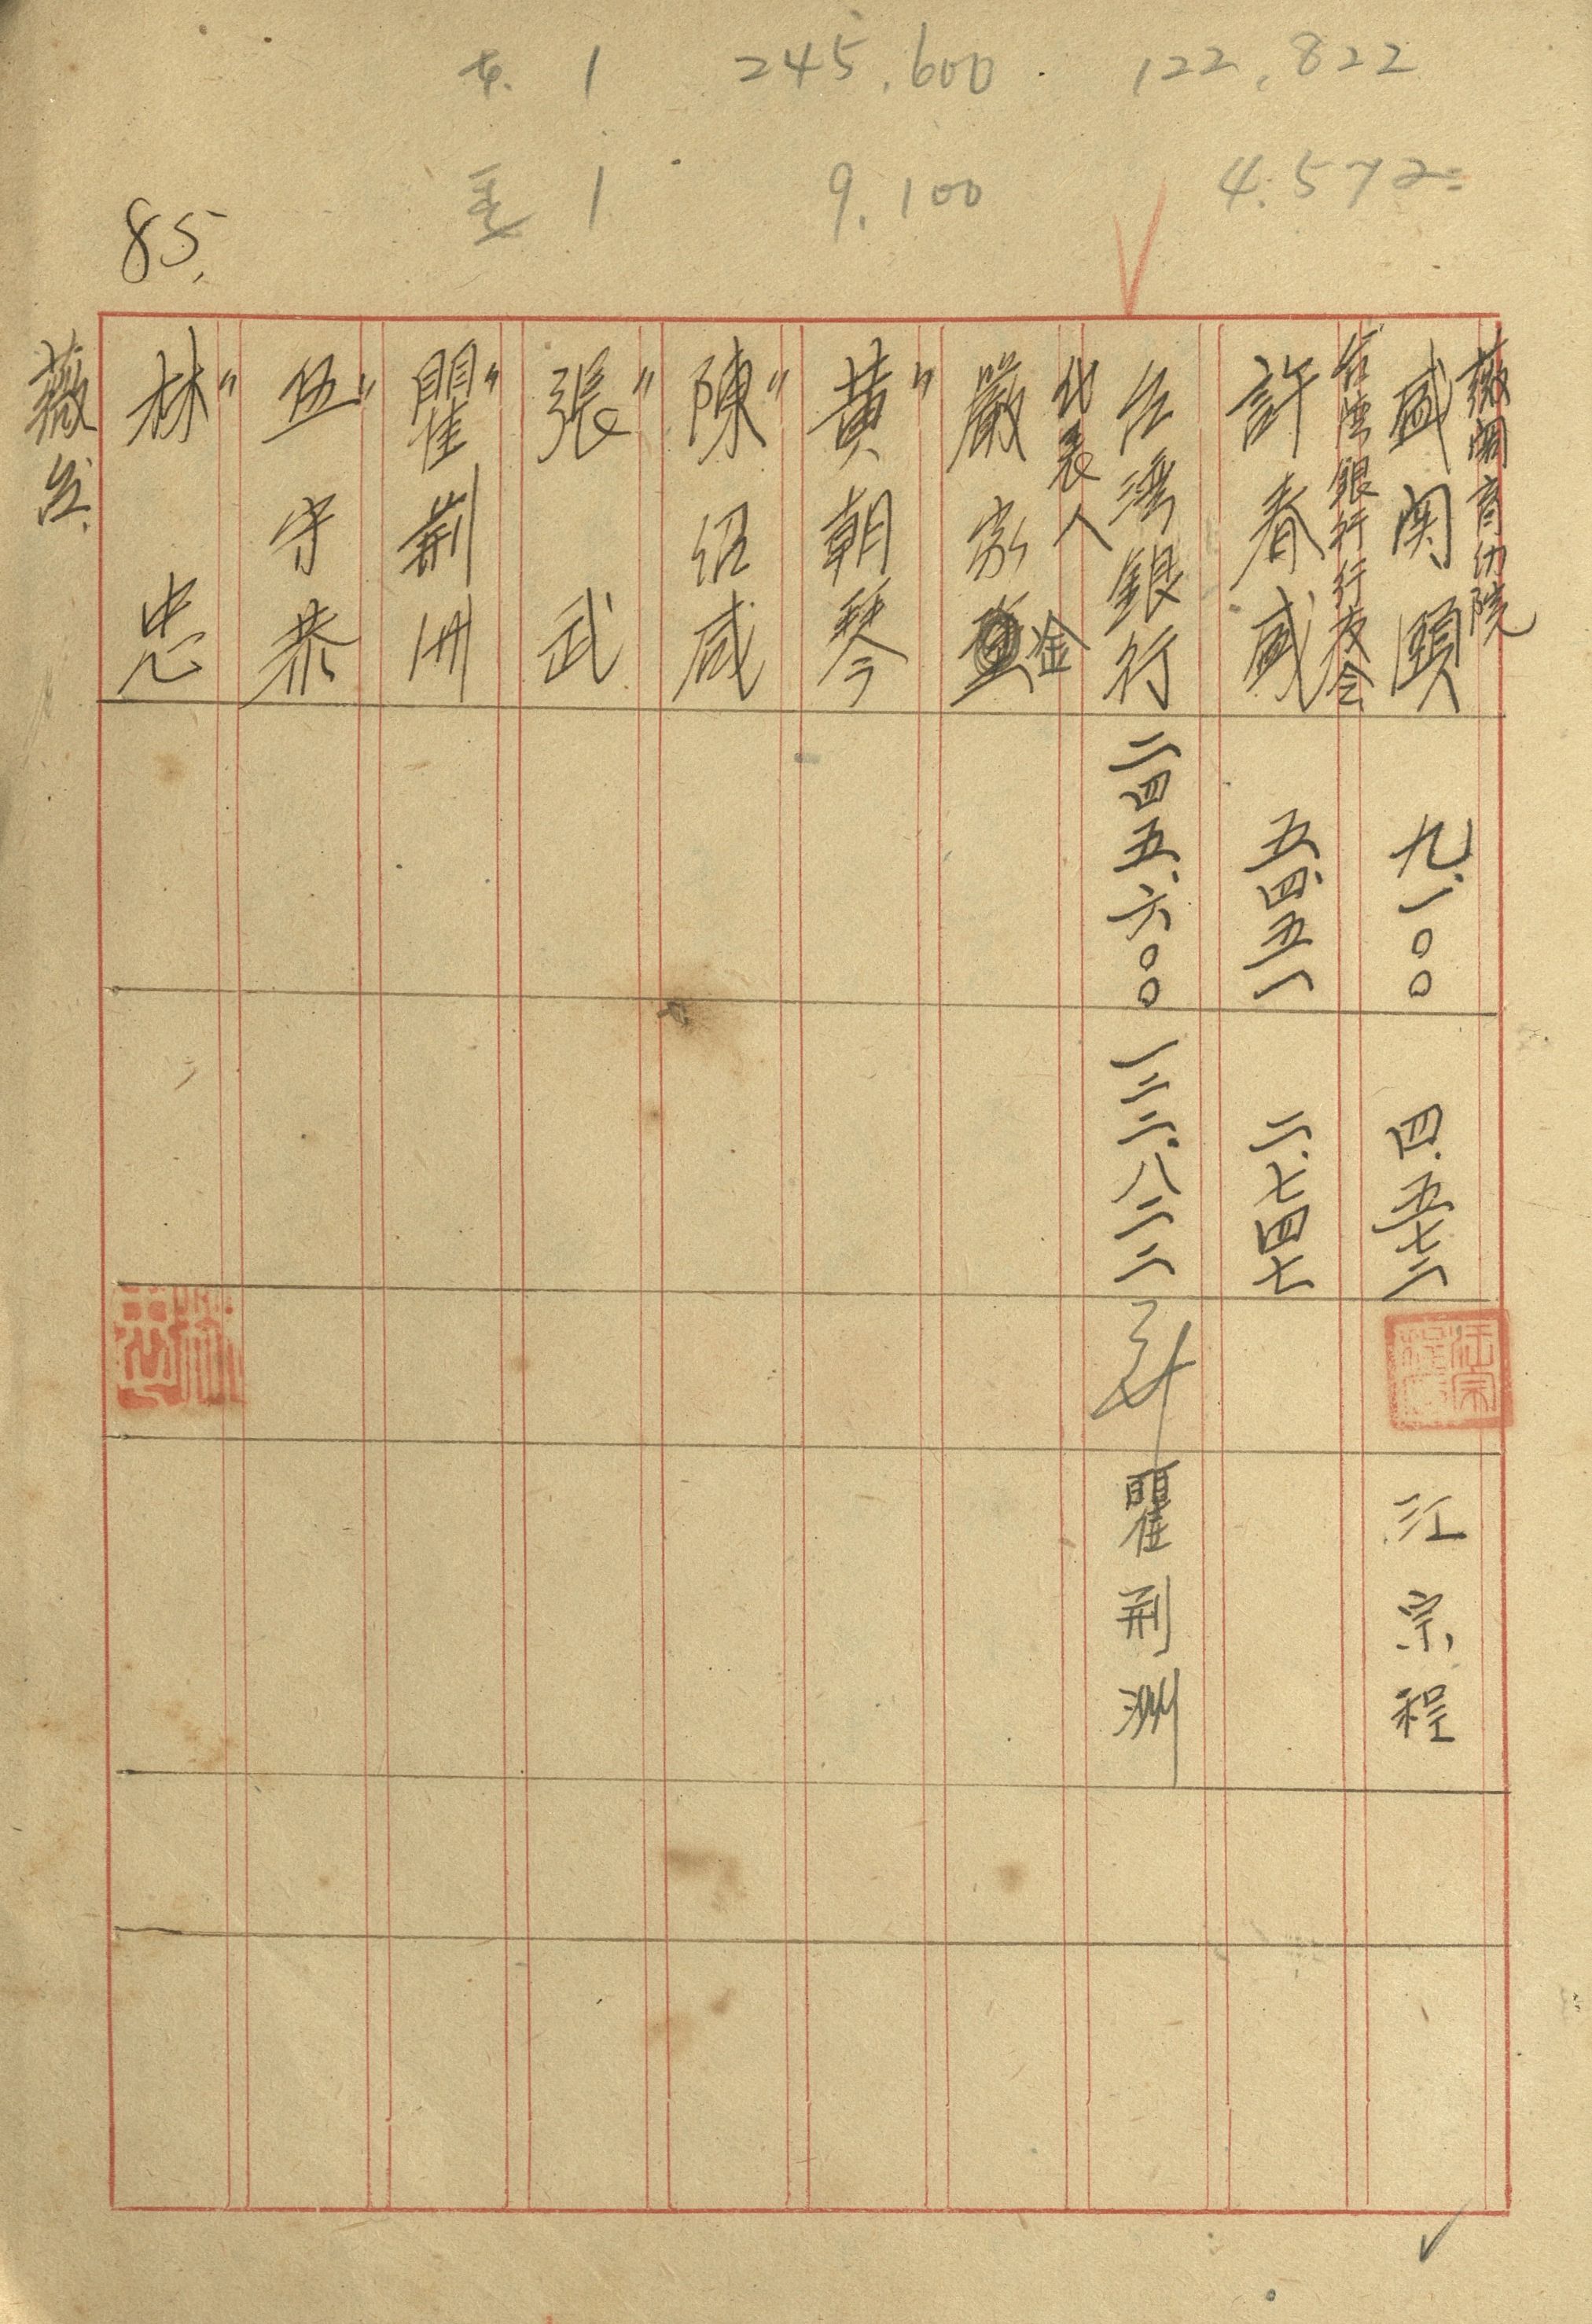 本. 1 245,600 122,822
1 9,100 4,572
85.
薇閣育幼院
盛関頤 九.一〇〇 四.五七二 江宗程
台湾銀行行友会
許春盛 五.四五一 二.七四七
台湾銀行 二四五.六〇〇 一二二.八二二 瞿荊洲
代表人
嚴家金
〃
黄朝琴
〃
陳紹咸
〃
張武
〃
瞿荊洲
〃
伍守恭
〃
林忠
薇台.
江宗程
林忠